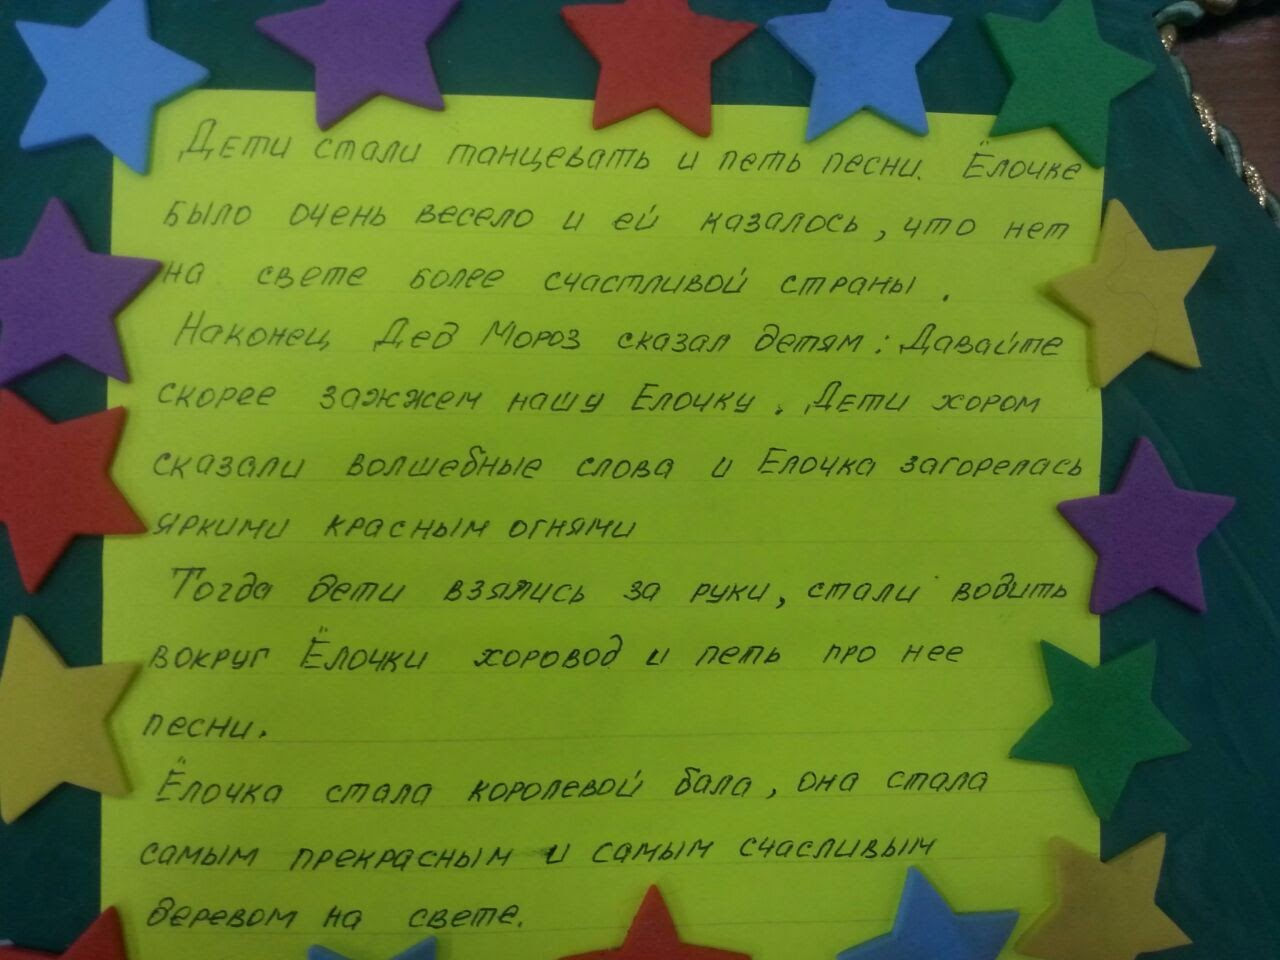 Дети стали танцевать и петь песни. Ёлочке
было очень весело и ей казалось, что нет
на свете более счастливой страны.
Наконец Дед Мороз сказал детям: Давайте
скорее зажжем нашу Елочку. Дети хором
сказали волшебные слова и Елочка загорелась
яркими красным огнями
Тогда дети взялись за руки, стали водить
вокруг Ёлочки хоровод и петь про нее
песни.
Ёлочка стала королевой бала, она стала
самым прекрасным и самым счасливым
деревом на свете.